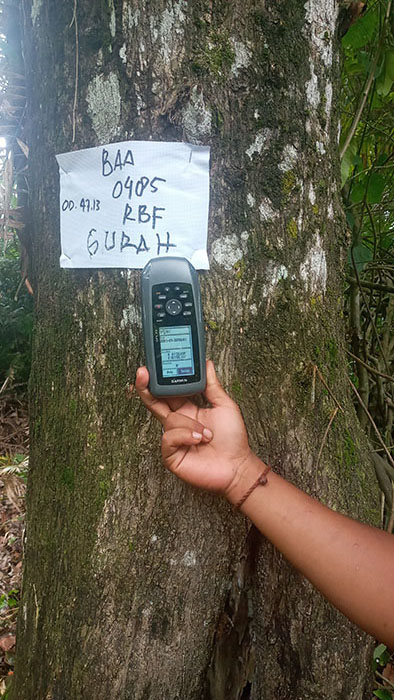 BAA
0485
00.47.13
RBF
GURAH
GARMIN